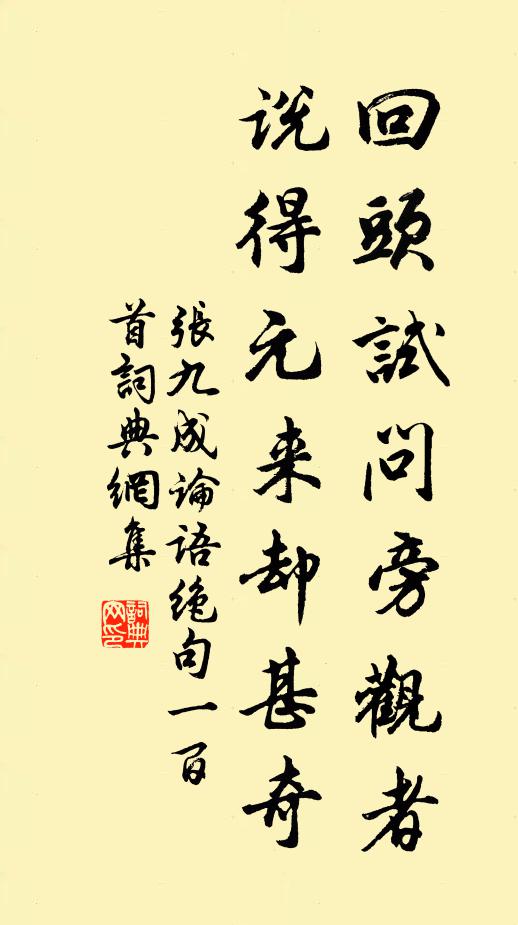 回頭試問旁觀者
説得元来却甚奇
張九成論語絶句一百
首詞典網集
詞典网印